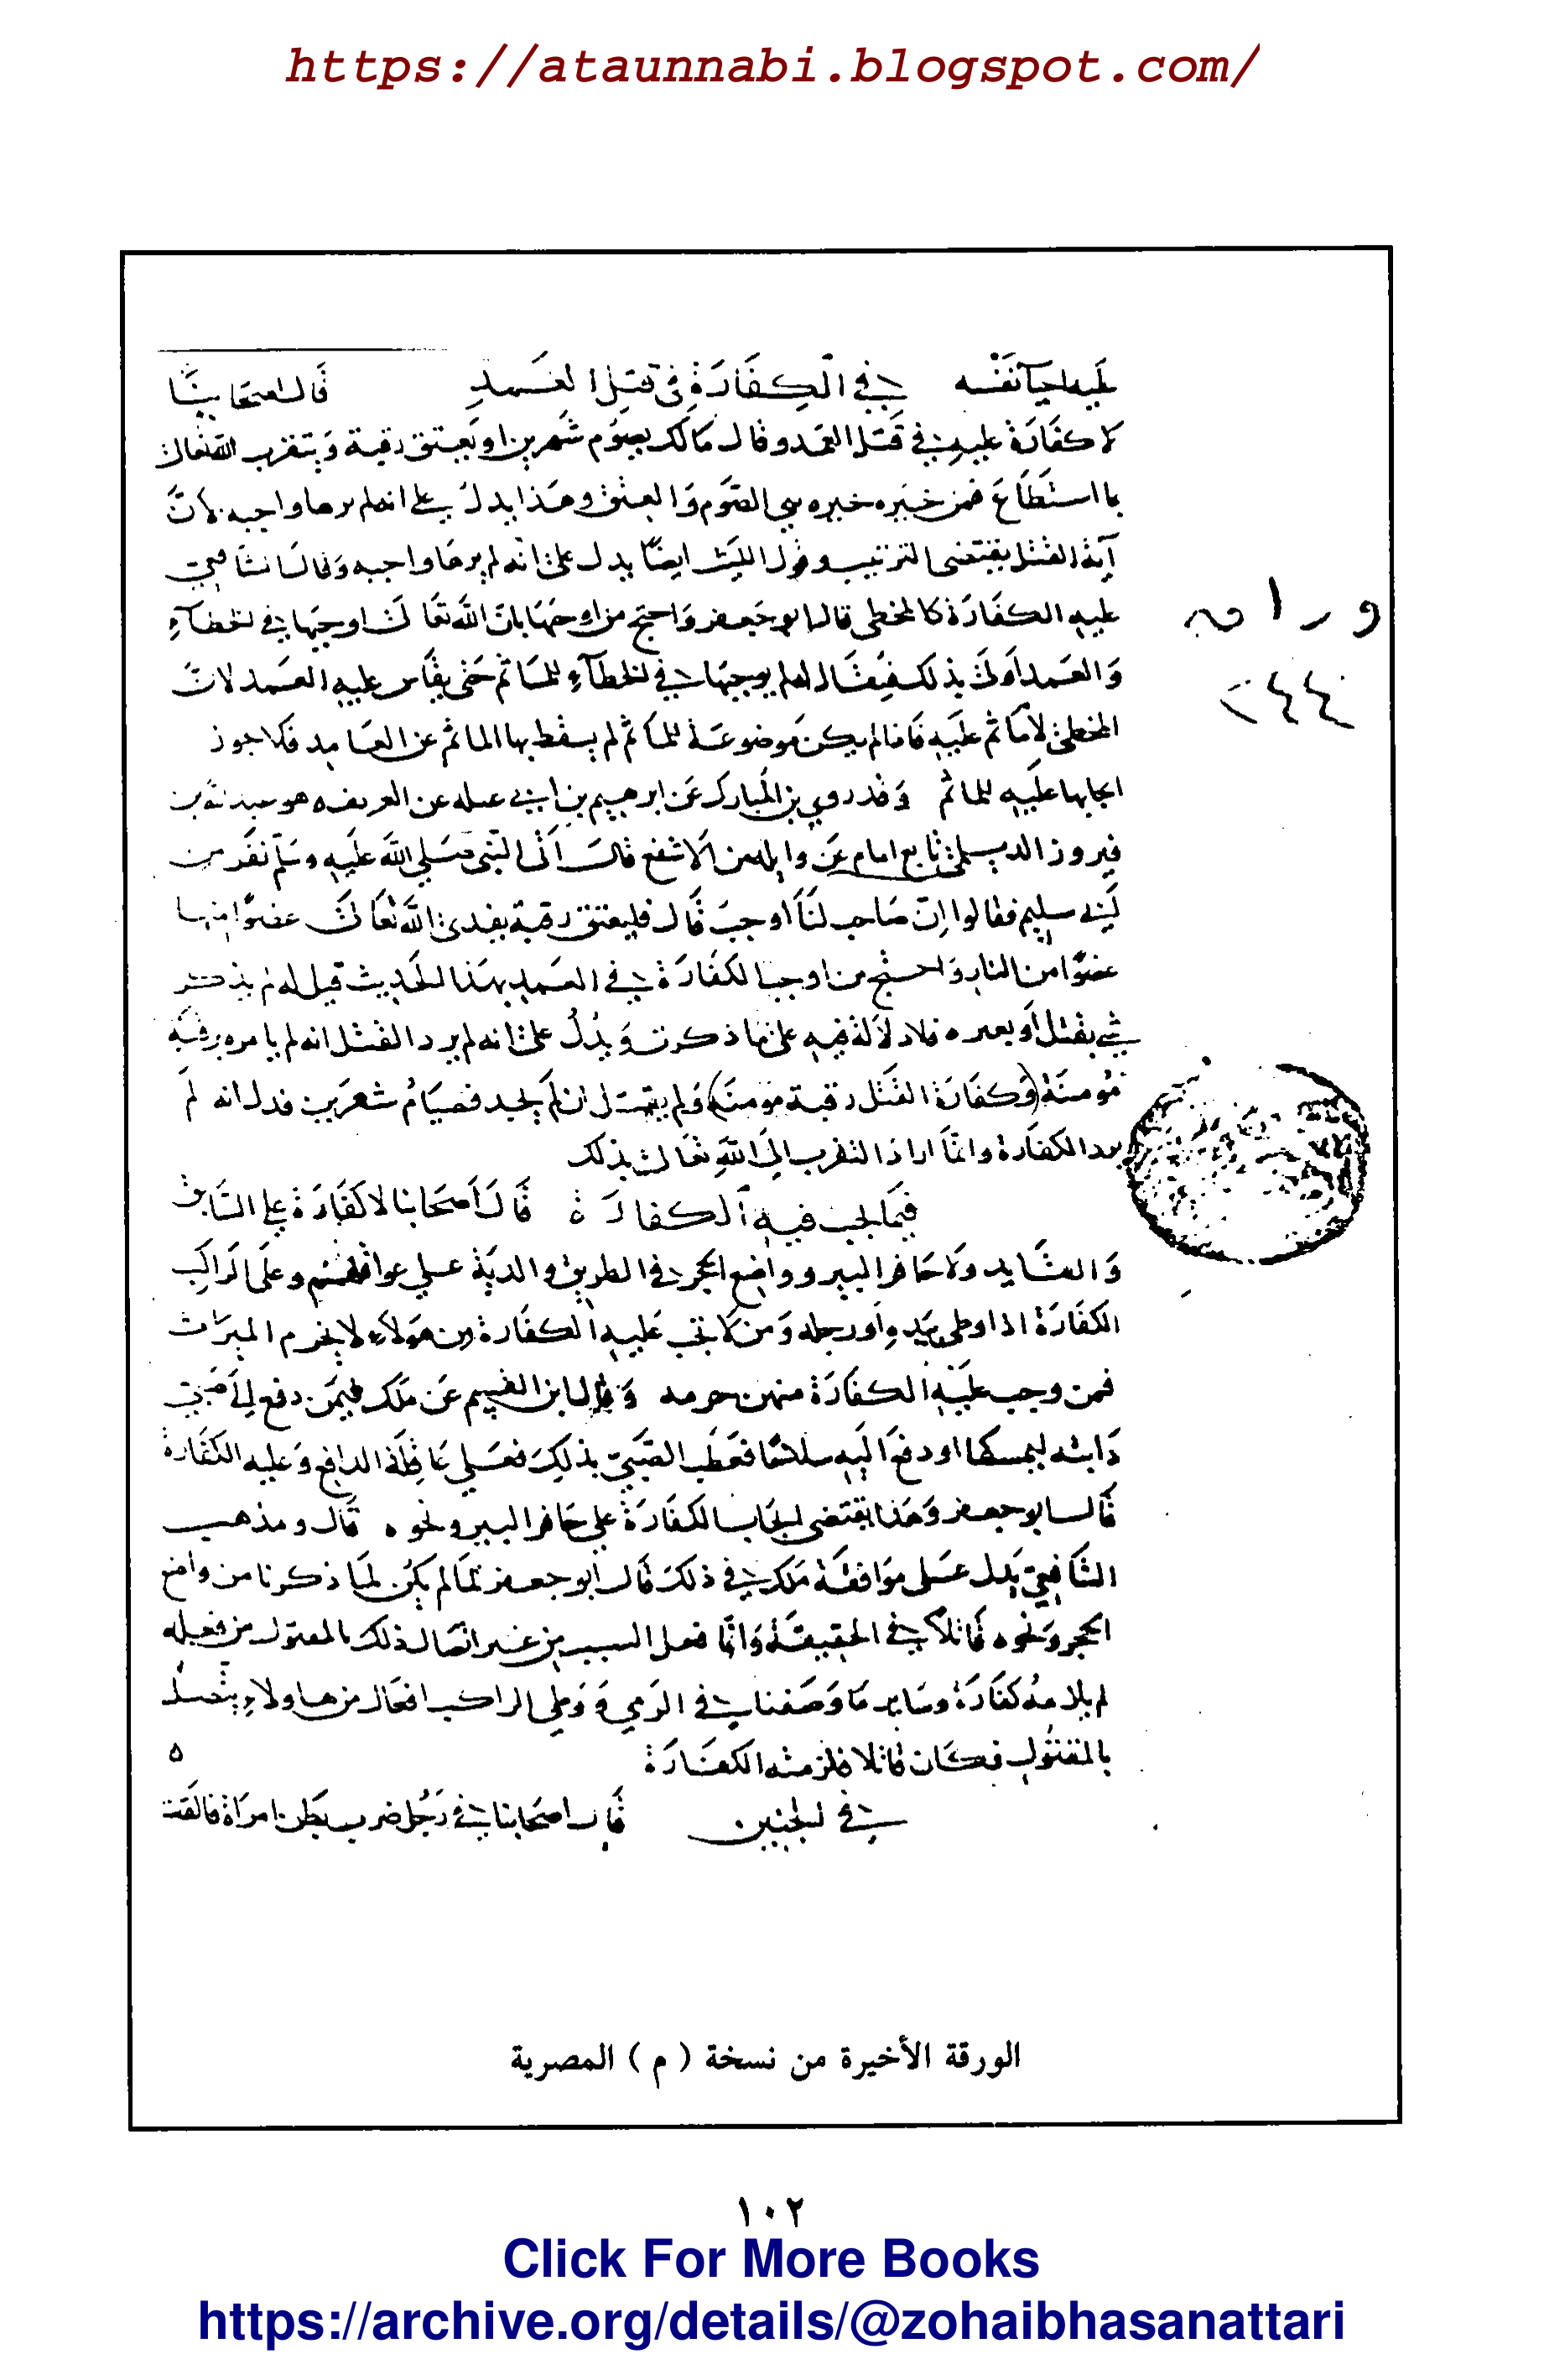 https://ataunnabi.blogspot.com/
في الكفارة في قتل العمد قال أصحابنا
لا كفارة عليه في قتل العمد وقال مالك يصوم شهرين او يعتق رقبة ويتقرب الى الله تعالى
بما استطاع فمن خيره خيره بين الصوم والعتق وهذا يدل على انه لم يرها واجبه لان
آية القتل يقتضى الترتيب وقول الليث ايضا يدل على انه لم يرها واجبه وقال الشافعي
عليه الكفارة كالمخطى قال ابو جعفر واحتج من اوجبها بان الله تعالى اوجبها في الخطأ
والعمد اولى بذلك فيقال له لم يوجبها في الخطأ للمأثم حتى يقاس عليه العمد لان
المخطئ لا مأثم عليه فاذا لم يكن موضوعة للمأثم لم يسقط بها المأثم عن العامد فلا يجوز
ايجابها عليه للمأثم وقد روى بن المبارك عن ابرهيم بن ابي عبله عن الغريف ه هو عبد الله بن
فيروز الديلمى تابع امام عن واثله بن الاسقع قال أتى النبي صلى الله عليه وسلم نفر من
بني سليم فقالوا إن صاحب لنا أوجب قال فليعتق رقبة يفدى الله تعالى عضوا منها
عضوا من النار واحتج من اوجب الكفارة في العمد بهذا الحديث قيل له لم يذكر
في بقتل او بغيره فلا دلالة فيه على ما ذكرت ويدل على انه لم يرد القتل انه لم يامره برقبة
مؤمنة (وكفارة القتل رقبة مؤمنة) ولم يقل ان لم يجد فصيام شهرين فدل انه لم
يرد الكفارة وانما اراد التقرب الى الله تعالى بذلك
فيما يجب فيه الكفارة قال أصحابنا لا كفارة على السابق
والقايد ولا حافر البير وواضع الحجر في الطريق والدية على عواقلهم وعلى الراكب
الكفارة اذا اوطى بيد او رجله ومن لا تجب عليه الكفارة من هؤلاء لا يحرم الميراث
فمن وجب عليه الكفارة منهن حرمه وقال ابن القسم عن ملك فيمن دفع الى صبي
دابته ليمسكها او دفع اليه سلاحا فعطب الصبي بذلك فعلى عاقلة الدافع وعليه الكفارة
قال ابو جعفر وهذا يقتضى ايجاب الكفارة على حافر البير ونحوه قال ومذهب
الشافعي يدل على موافقة ملك في ذلك قال ابو جعفر لما لم يكن لما ذكرنا من واضع
الحجر ونحوه قاتلا في الحقيقة وانما فعل السبب من غير اتصال ذلك بالمقتول من فعله
لم يلزمه كفارة وساير ما وصفنا في الرمي ووطي الراكب افعال من هاولاء يتصل
بالمقتول فكان قاتلا فلزمته الكفارة ه
في الجنين قال أصحابنا في رجل ضرب بطن امراة فالقت
٢٤٤
الورقة الأخيرة من نسخة ( م ) المصرية
١٠٢
Click For More Books
https://archive.org/details/@zohaibhasanattari